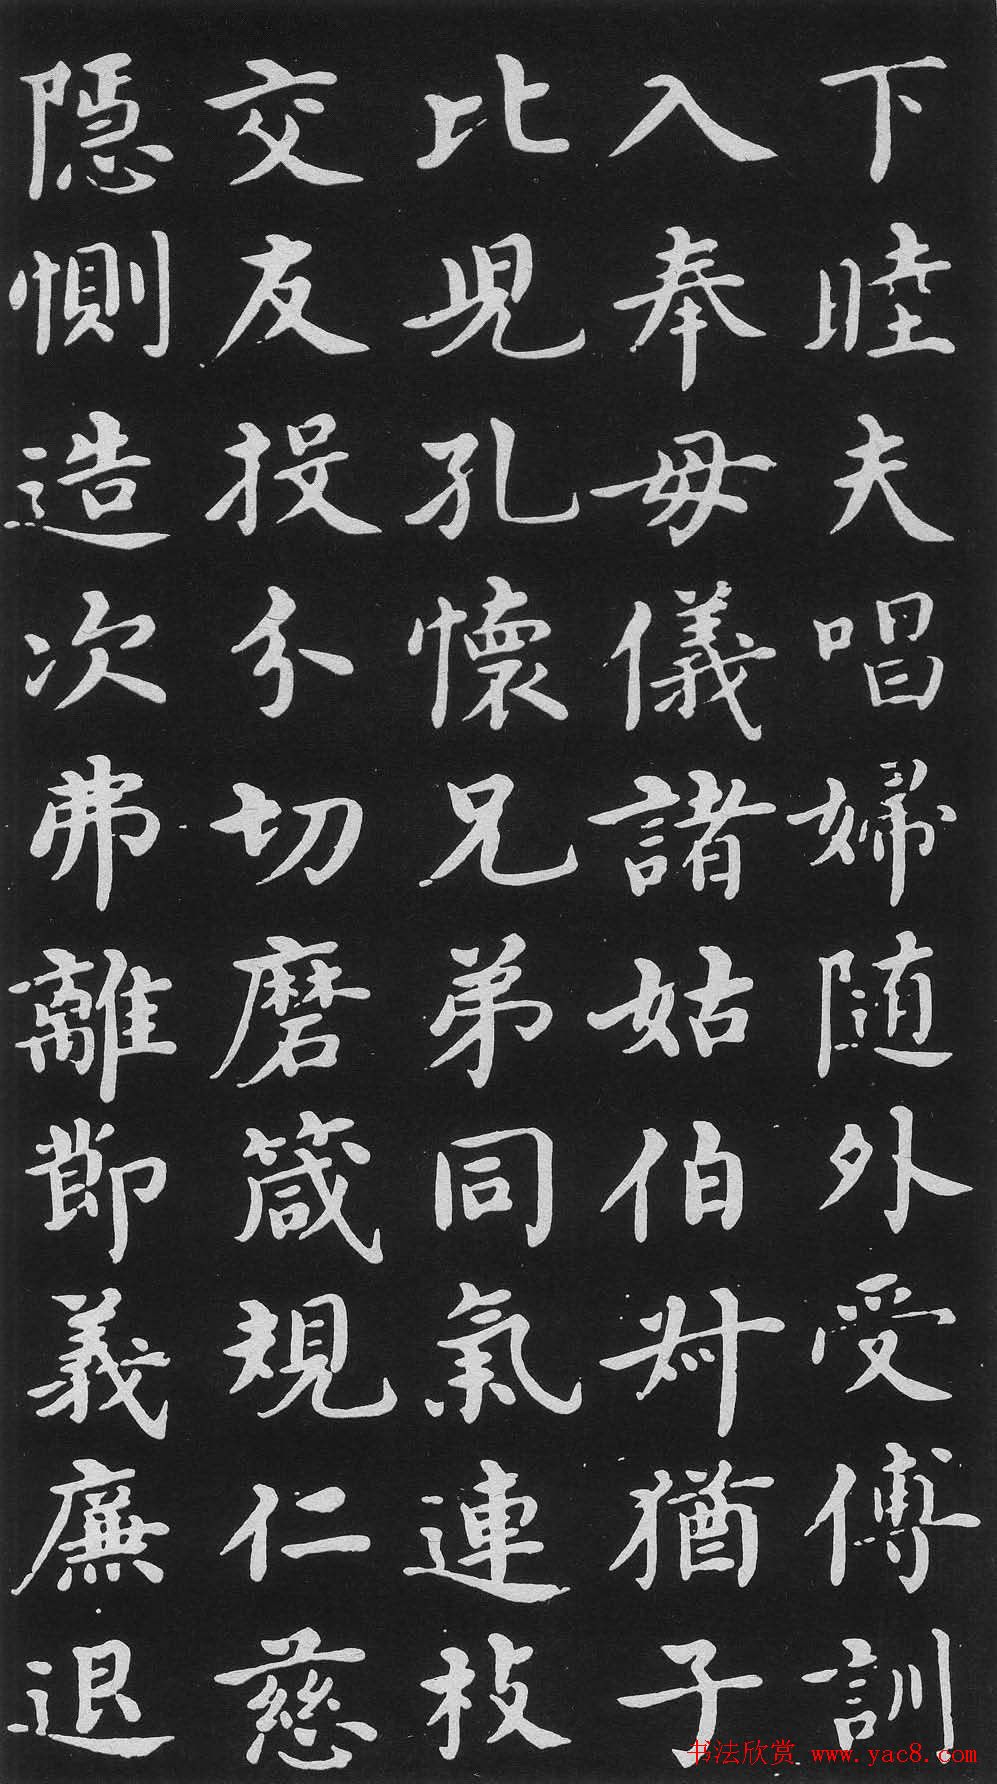 下睦夫唱婦随外受傅訓
入奉母儀諸姑伯叔猶子
比兒孔懷兄弟同氣連枝
交友投分切磨箴規仁慈
隱惻造次弗離節義廉退
书法欣赏 www.yac8.com